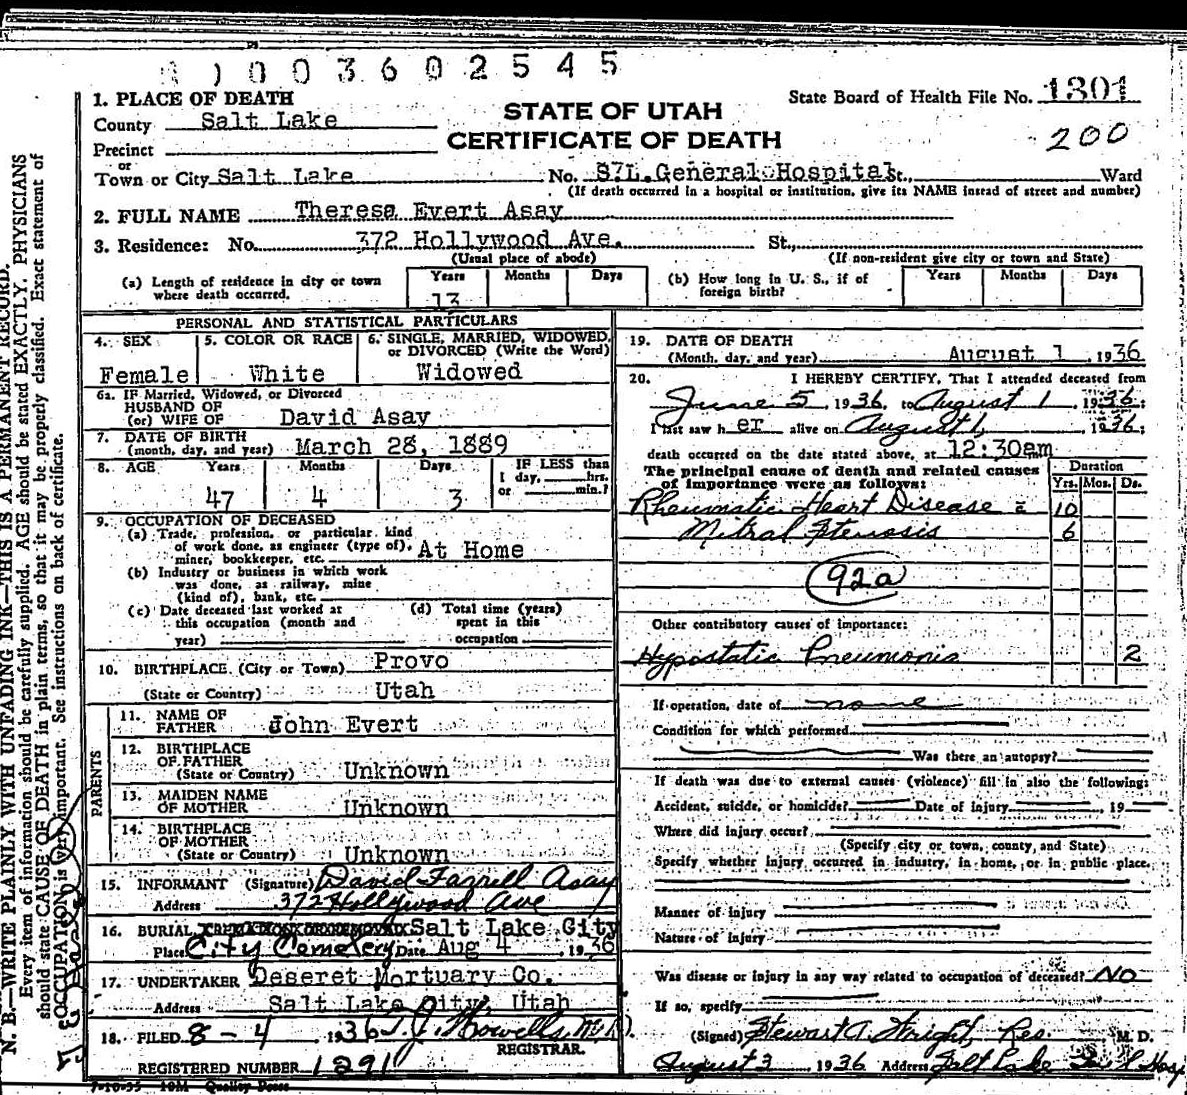 0 0 3 6 0 2 5 4 5
1. PLACE OF DEATH
County Salt Lake
Precinct
or
Town or City Salt Lake
STATE OF UTAH
CERTIFICATE OF DEATH
State Board of Health File No. 1301
200
No. S.L. General Hospital St., Ward
(If death occurred in a hospital or institution, give its NAME instead of street and number)
2. FULL NAME Theresa Evert Asay
3. Residence: No. 372 Hollywood Ave. St.,
(Usual place of abode) (If non-resident give city or town and State)
(a) Length of residence in city or town
where death occurred.
Years Months Days
13
(b) How long in U. S., if of
foreign birth?
Years Months Days
PERSONAL AND STATISTICAL PARTICULARS
4. SEX
Female
5. COLOR OR RACE
White
6. SINGLE, MARRIED, WIDOWED,
or DIVORCED (Write the Word)
Widowed
6a. IF Married, Widowed, or Divorced
HUSBAND OF
(or) WIFE OF David Asay
7. DATE OF BIRTH
(month, day, and year) March 28, 1889
8. AGE Years Months Days IF LESS than
1 day, hrs.
or min.?
47 4 3
9. OCCUPATION OF DECEASED
(a) Trade, profession, or particular kind
of work done, as engineer (type of),
miner, bookkeeper, etc. At Home
(b) Industry or business in which work
was done, as railway, mine
(kind of), bank, etc.
(c) Date deceased last worked at
this occupation (month and
year)
(d) Total time (years)
spent in this
occupation
10. BIRTHPLACE (City or Town) Provo
(State or Country) Utah
PARENTS
11. NAME OF
FATHER John Evert
12. BIRTHPLACE
OF FATHER
(State or Country) Unknown
13. MAIDEN NAME
OF MOTHER Unknown
14. BIRTHPLACE
OF MOTHER
(State or Country) Unknown
15. INFORMANT (Signature) David Farrell Asay
Address 372 Hollywood Ave
16. BURIAL Salt Lake City
Place City Cemetery Date Aug 4, 1936
17. UNDERTAKER Deseret Mortuary Co.
Address Salt Lake City, Utah
18. FILED 8-4 1936 T.J. Howells M.D.
REGISTRAR.
REGISTERED NUMBER 1291
7-10-35 10M Quality Press
19. DATE OF DEATH
(Month, day, and year) August 1, 1936
20. I HEREBY CERTIFY, That I attended deceased from
June 5, 1936, to August 1, 1936;
I last saw h er alive on August 1, 1936;
death occurred on the date stated above, at 12:30am
The principal cause of death and related causes
of importance were as follows:
Duration
Yrs. Mos. Ds.
Rheumatic Heart Disease c̄ 10
Mitral Stenosis 6
92a
Other contributory causes of importance:
Hypostatic Pneumonia 2
If operation, date of none
Condition for which performed
Was there an autopsy?
If death was due to external causes (violence) fill in also the following:
Accident, suicide, or homicide? Date of injury , 19
Where did injury occur?
(Specify city or town, county, and State)
Specify whether injury occurred in industry, in home, or in public place.
Manner of injury
Nature of injury
Was disease or injury in any way related to occupation of deceased? No
If so, specify
(Signed) Stewart A. Wright, Res M. D.
August 3 1936 Address Salt Lake Hosp
N. B.—WRITE PLAINLY WITH UNFADING INK—THIS IS A PERMANENT RECORD.
Every item of information should be carefully supplied. AGE should be stated EXACTLY. PHYSICIANS
should state CAUSE OF DEATH in plain terms, so that it may be properly classified. Exact statement of
OCCUPATION is very important. See instructions on back of certificate.